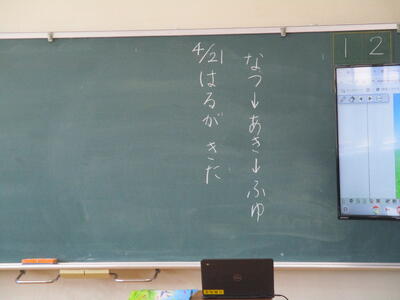 1 2
なつ→あき→ふゆ
4/21 はるが きた
DELL